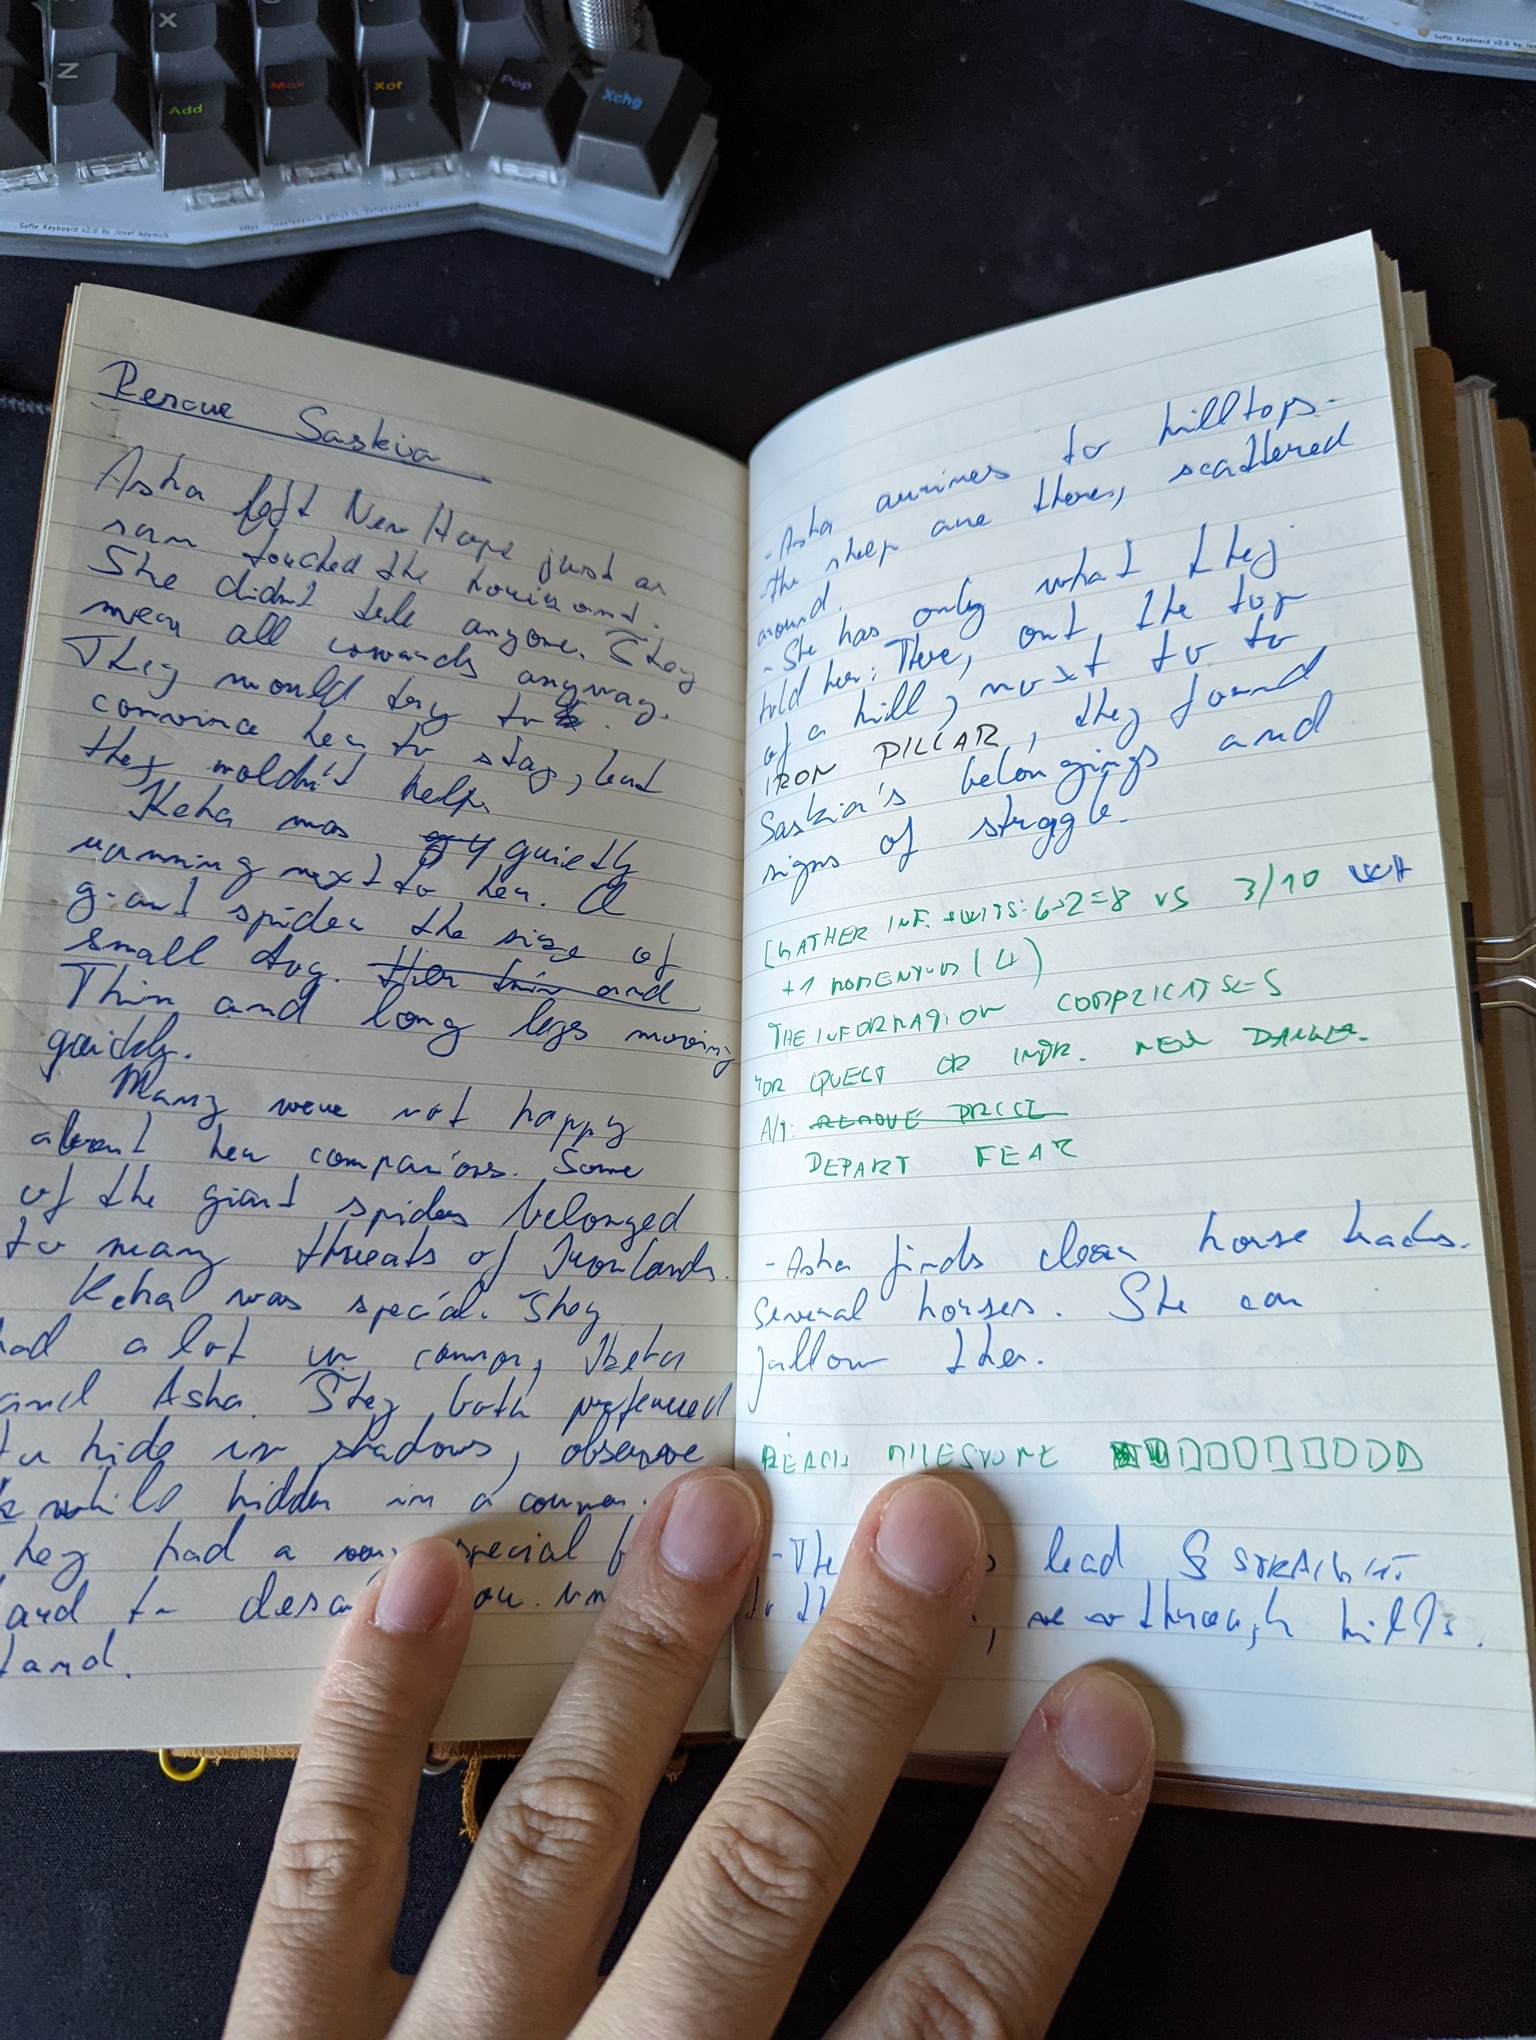 X
Z
Add
Mov
Xor
Pop
Xchg
Sofle Keyboard v2.0 by Josef Adamcik
Sofle Keyboard v2.0 by
Rescue Saskia
Asha left New Hope just as
sun touched the
She didn't tele anyone. They
all cowards anyway.
They would try to
convince her to stay, but
they woldn't help.
Keha was quietly
running next to her. A
giant spider the size of
small dog.
Thin and long legs moving
quickly.
Many were not happy
about her companions. Some
of the giant spiders belonged
to many threats of Ironlands.
Keha was special. They
had a lot in common,
and Asha. They both preferred
to hide in shadows, observe
while hidden in a corner.
hey had a special
and
tand.
- Asha arrives to hilltops.
the sheep are there, scattered
around.
- She has only what they
told her: There, ont the top
of a hill, next to to
IRON PILLAR, they found
Saskia's belongings and
signs of strggle.
GATHER INF. +WITS: 6+2=8 vs 3/10 WH
+1 MOMENTUM (4)
THE INFORMATION COMPLICATES
YOR QUEST OR INTR. NEW DANGER.
A/T: REMOVE PRICE
DEPART FEAR
- Asha finds clear horse tracks.
Several horses. She can
follow the.
REACH MILESTONE
- The lead STRAIGHT
through hills.